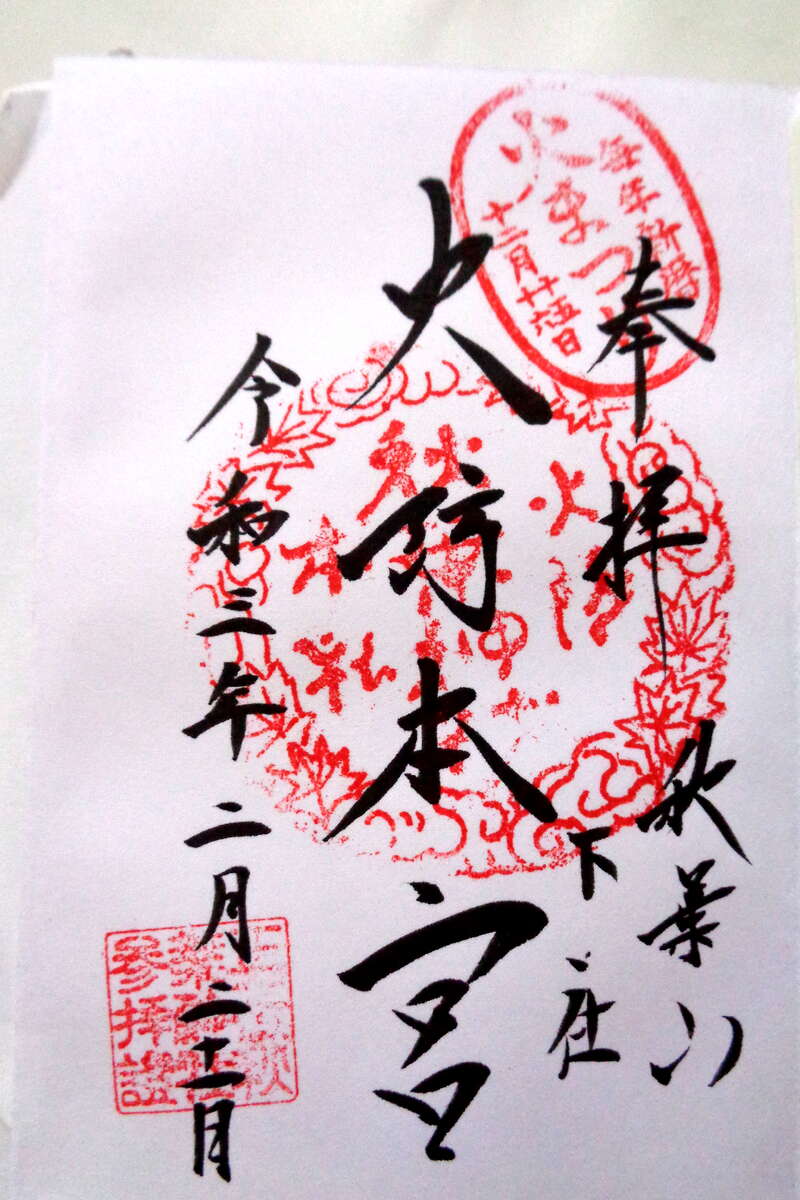 奉拝
秋葉山
下社
火防本宮
令和三年二月二十一日
毎年新暦
火まつり
十二月
火防
秋葉神社
参拝證